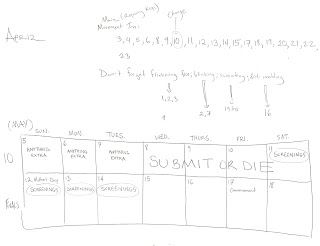 change
Movement In:
APRIL
3, 4, 5, 6, 8, 9, 10, 11, 12, 13, 14, 15, 17, 18, 19, 20, 21, 22,
23
Don't forget
1, 2, 3
2, 7
16
(MAY)
SUN. MON. TUES. WED. THURS. FRI. SAT.
5 6 7 8 9 10 11
ANYTHING EXTRA ANYTHING EXTRA ANYTHING EXTRA SUBMIT OR DIE (SCREENINGS)
10
12 Mother's Day 13 14 15 16 17 18
(SCREENINGS) (SCREENINGS) (SCREENINGS)
FINALS